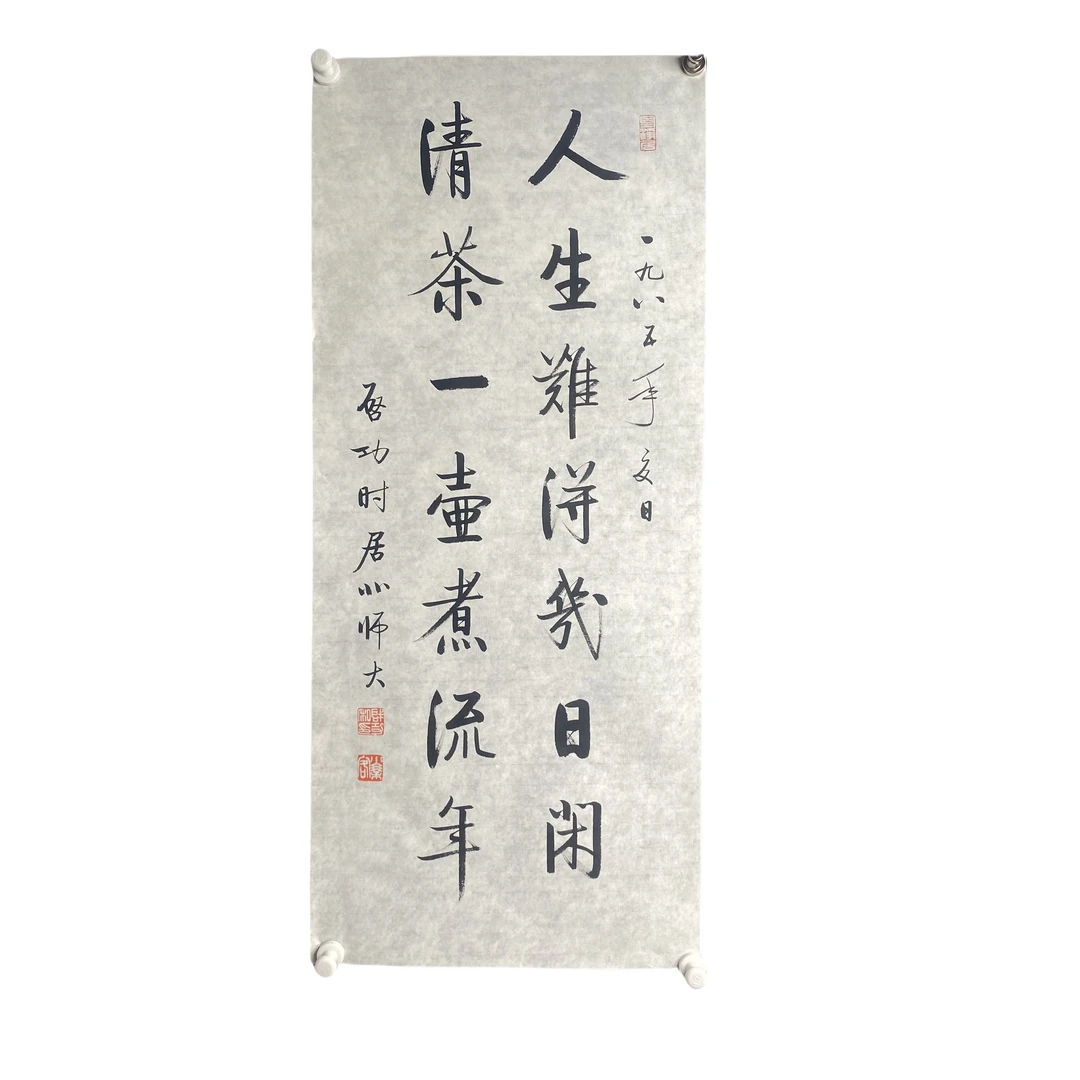 一九八五年夏日
人生難得幾日閑
清茶一壺煮流年
啓功时居北师大